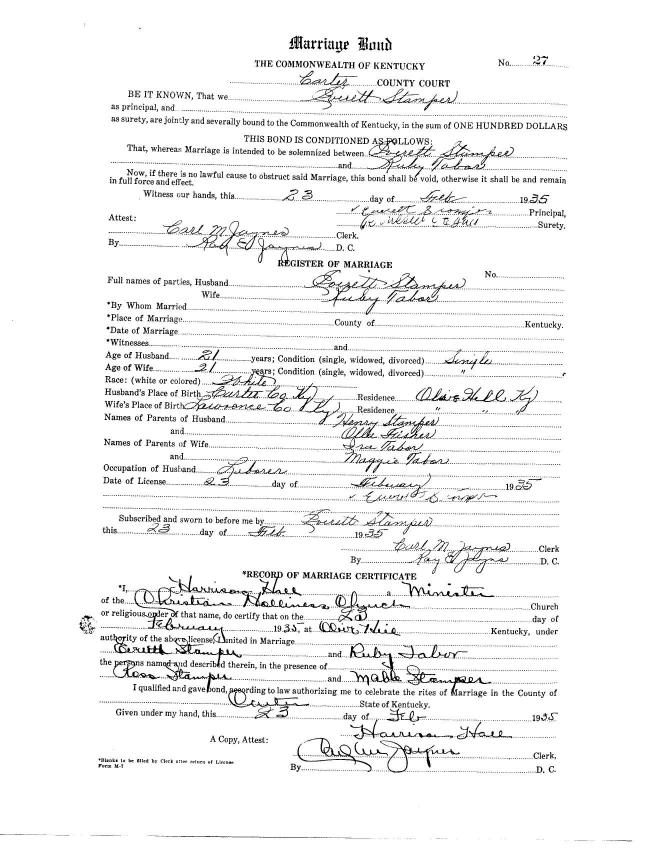 Marriage Bond
THE COMMONWEALTH OF KENTUCKY No. 27
Carter COUNTY COURT
BE IT KNOWN, That we Everett Stamper
as principal, and
as surety, are jointly and severally bound to the Commonwealth of Kentucky, in the sum of ONE HUNDRED DOLLARS
THIS BOND IS CONDITIONED AS FOLLOWS:
That, whereas Marriage is intended to be solemnized between Everett Stamper
and Ruby Tabor
Now, if there is no lawful cause to obstruct said Marriage, this bond shall be void, otherwise it shall be and remain
in full force and effect.
Witness our hands, this 23 day of Feb 1935
Principal,
Attest: Surety.
Carl M Jaynes Clerk.
By Ray E Jaynes D. C.
REGISTER OF MARRIAGE
No.
Full names of parties, Husband Everett Stamper
Wife Ruby Tabor
*By Whom Married
*Place of Marriage County of Kentucky.
*Date of Marriage
*Witnesses and
Age of Husband 21 years; Condition (single, widowed, divorced) Single
Age of Wife 21 years; Condition (single, widowed, divorced) "
Race: (white or colored) White
Husband's Place of Birth Carter Co Ky Residence Olive Hill Ky
Wife's Place of Birth Lawrence Co Ky Residence " " "
Names of Parents of Husband Henry Stamper
and Ollie Fisher
Names of Parents of Wife Ira Tabor
and Maggie Tabor
Occupation of Husband Laborer
Date of License 23 day of February 1935
Subscribed and sworn to before me by Everett Stamper
this 23 day of Feb. 1935
Carl M. Jaynes Clerk
By Ray E Jaynes D. C.
*RECORD OF MARRIAGE CERTIFICATE
*I, Harrison Hall a Minister
of the Christian Holliness Church Church
or religious order of that name, do certify that on the 23 day of
February 1935, at Olive Hill Kentucky, under
authority of the above license, I united in Marriage
Everett Stamper and Ruby Tabor
the persons named and described therein, in the presence of
Ross Stamper and Mable Stamper
I qualified and gave bond, according to law authorizing me to celebrate the rites of Marriage in the County of
Carter State of Kentucky.
Given under my hand, this 23 day of Feb 1935
Harrison Hall
A Copy, Attest: Carl M Jaynes Clerk,
By D. C.
*Blanks to be filled by Clerk after return of License
Form M-7